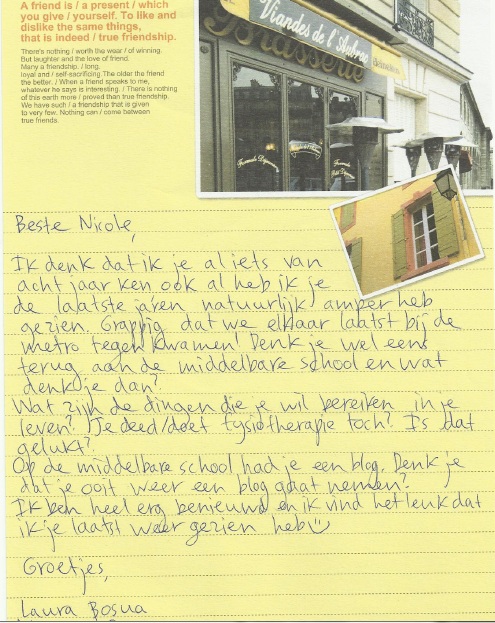 A friend is / a present / which
you give / yourself. To like and
dislike the same things,
that is indeed / true friendship.
There's nothing / worth the wear / of winning.
But laughter and the love of friend.
Many a friendship. / long,
loyal and / self-sacrificing The older the friend
the better. / When a friend speaks to me,
whatever he says is interesting. / There is nothing
of this earth more / proved than true friendship.
We have such / a friendship that is given
to very few. Nothing can / come between
true friends.
Viandes de l'Aubrac
Beste Nicole,
Ik denk dat ik je al iets van
acht jaar ken ook al heb ik je
de laatste jaren natuurlijk amper heb
gezien. Grappig dat we elkaar laatst bij de
metro tegen kwamen! Denk je wel eens
terug aan de middelbare school en wat
denk je dan?
Wat zijn de dingen die je wil bereiken in je
leven? Je deed/doet fysiotherapie toch? Is dat
gelukt?
Op de middelbare school had je een blog. Denk je
dat je ooit weer een blog gaat nemen?
Ik ben heel erg benieuwd en ik vind het leuk dat
ik je laatst weer gezien heb
Groetjes,
Laura Bosua